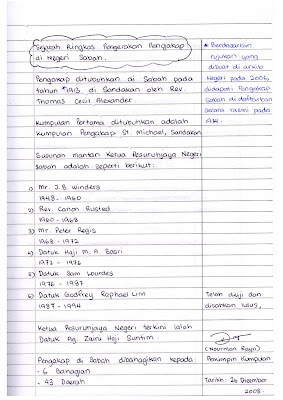 Sejarah Ringkas Pengerakan Pengakap
di Negeri Sabah.
Pengakap ditubuhkan di Sabah pada
tahun *1913 di Sandakan oleh Rev.
Thomas Cecil Alexander.
Kumpulan Pertama ditubuhkan adalah
Kumpulan Pengakap St. Michael, Sandakan.
Susunan mantan Ketua Pesuruhjaya Negeri
Sabah adalah seperti berikut:
1) Mr. J.B. Winders
1948 - 1960
2) Rev. Canon Rusted
1960 - 1968
3) Mr. Peter Regis
1968 - 1972
4) Datuk Haji M. A. Basri
1972 - 1976
5) Datuk Sam Lourdes
1976 - 1987
6) Datuk Godfrey Raphael Lim
1987 - 1994
Ketua Pesuruhjaya Negeri terkini ialah
Datuk Ag. Zairu Haji Suntim.
Pengakap di Sabah dibahagikan kepada:
- 6 Bahagian
- 43 Daerah
* Berdasarkan
rujukan yang
dibuat di arkib
Negeri pada 2006,
didapati Pengakap
Sabah di daftarkan
secara rasmi pada
1914.
Telah diuji dan
disahkan lulus,
Pemimpin Kumpulan
Tarikh: 20 Disember
2008.